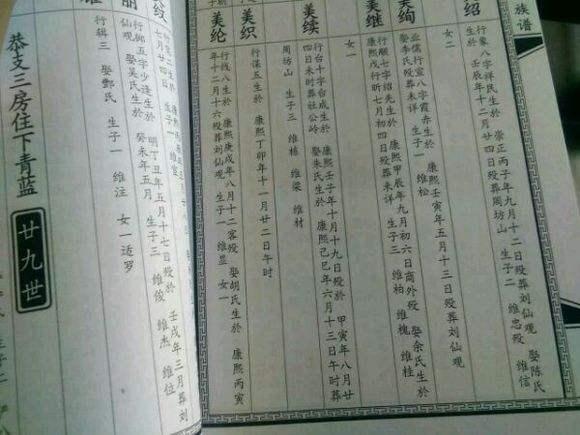 族谱
绍
行象八字祥民生於 崇正丙子年九月十二日殁葬刘仙观 娶陈氏
生於 壬辰年十二月廿四殁葬周坊山 生子二 维忠殁 维信
女二
美绚
业儒行宣 字霞赤生於 康熙壬寅年五月十三日殁葬刘仙观
娶李氏殁葬未详 生子一 维松
美继
行靓七字绍先生於 康熙甲辰年九月初六日商外殁 娶余氏生於
康熙戊行昕七月初四日殁葬未详 生子三 维柏 维槐 维桂
女一
美续
行台十字台成生於 康熙壬子年十月十九日殁於 甲寅年八月廿
四日未时葬社公岭 娶朱氏生於 康熙己巳年六月十三日午时葬
周坊山 生子三 维栋 维梁 维材
美织
行谋五生於 康熙丁卯年十一月廿二日午时
美纶
行线八生於 康熙庚戌年八月十二客殁 娶胡氏生於 康熙丙寅
年十二月十六殁葬刘仙观 生子一 维显 女一
行郎五字少逢生於 明丁丑年五月十七日殁於 壬戌年三月葬刘
仙观 娶吴氏生於 癸未年五月 生子三 维俊 维杰 维位
行辑三 娶鄷氏 生子一 维注 女一适罗
恭支三房住下青蓝
廿九世